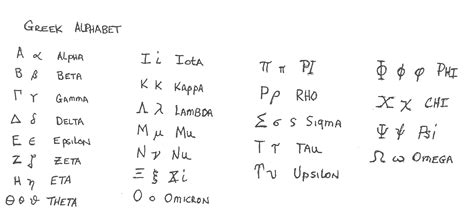 GREEK ALPHABET
A α ALPHA
B β BETA
Γ γ GAMMA
Δ δ DELTA
E ε EPSILON
Z ζ ZETA
H η ETA
Θ θ ϑ THETA
I i IOTA
K κ KAPPA
Λ λ LAMBDA
M μ MU
N ν NU
Ξ ξ Xi
O o OMICRON
π π PI
P ρ RHO
Σ σ ς SIGMA
T τ TAU
ϒ υ UPSILON
Φ φ ϕ PHI
X χ CHI
Ψ ψ Psi
Ω ω OMEGA